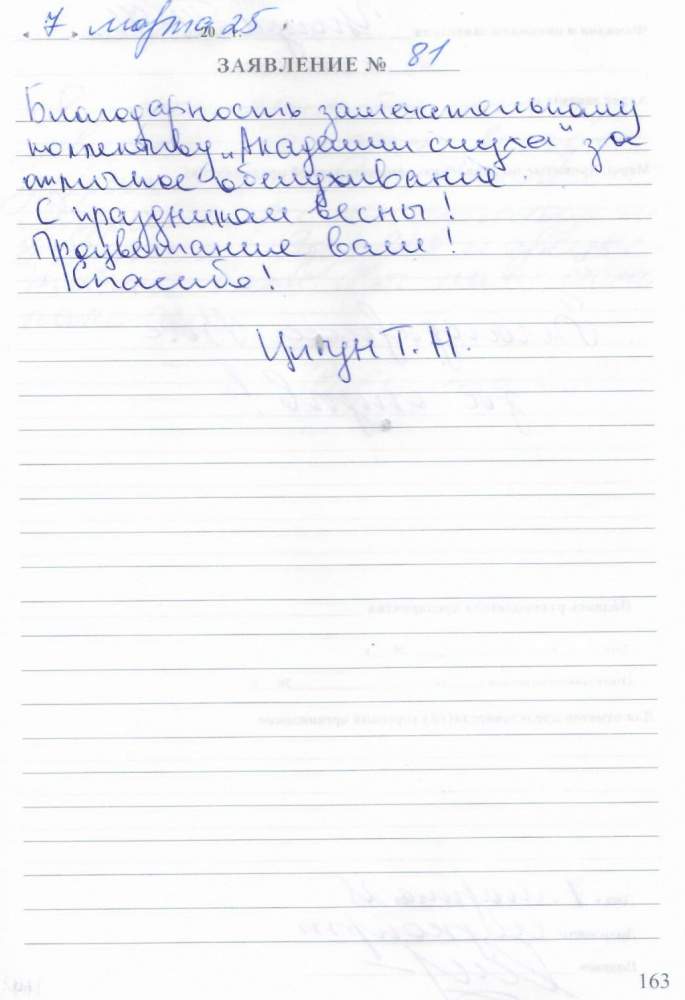 « 7 » марта 2025 г.
ЗАЯВЛЕНИЕ № 81
Благодарность замечательному
коллективу „Академии слуха" за
отличное обслуживание.
С праздником весны!
Процветание вам!
Спасибо!
Т. Н.
163